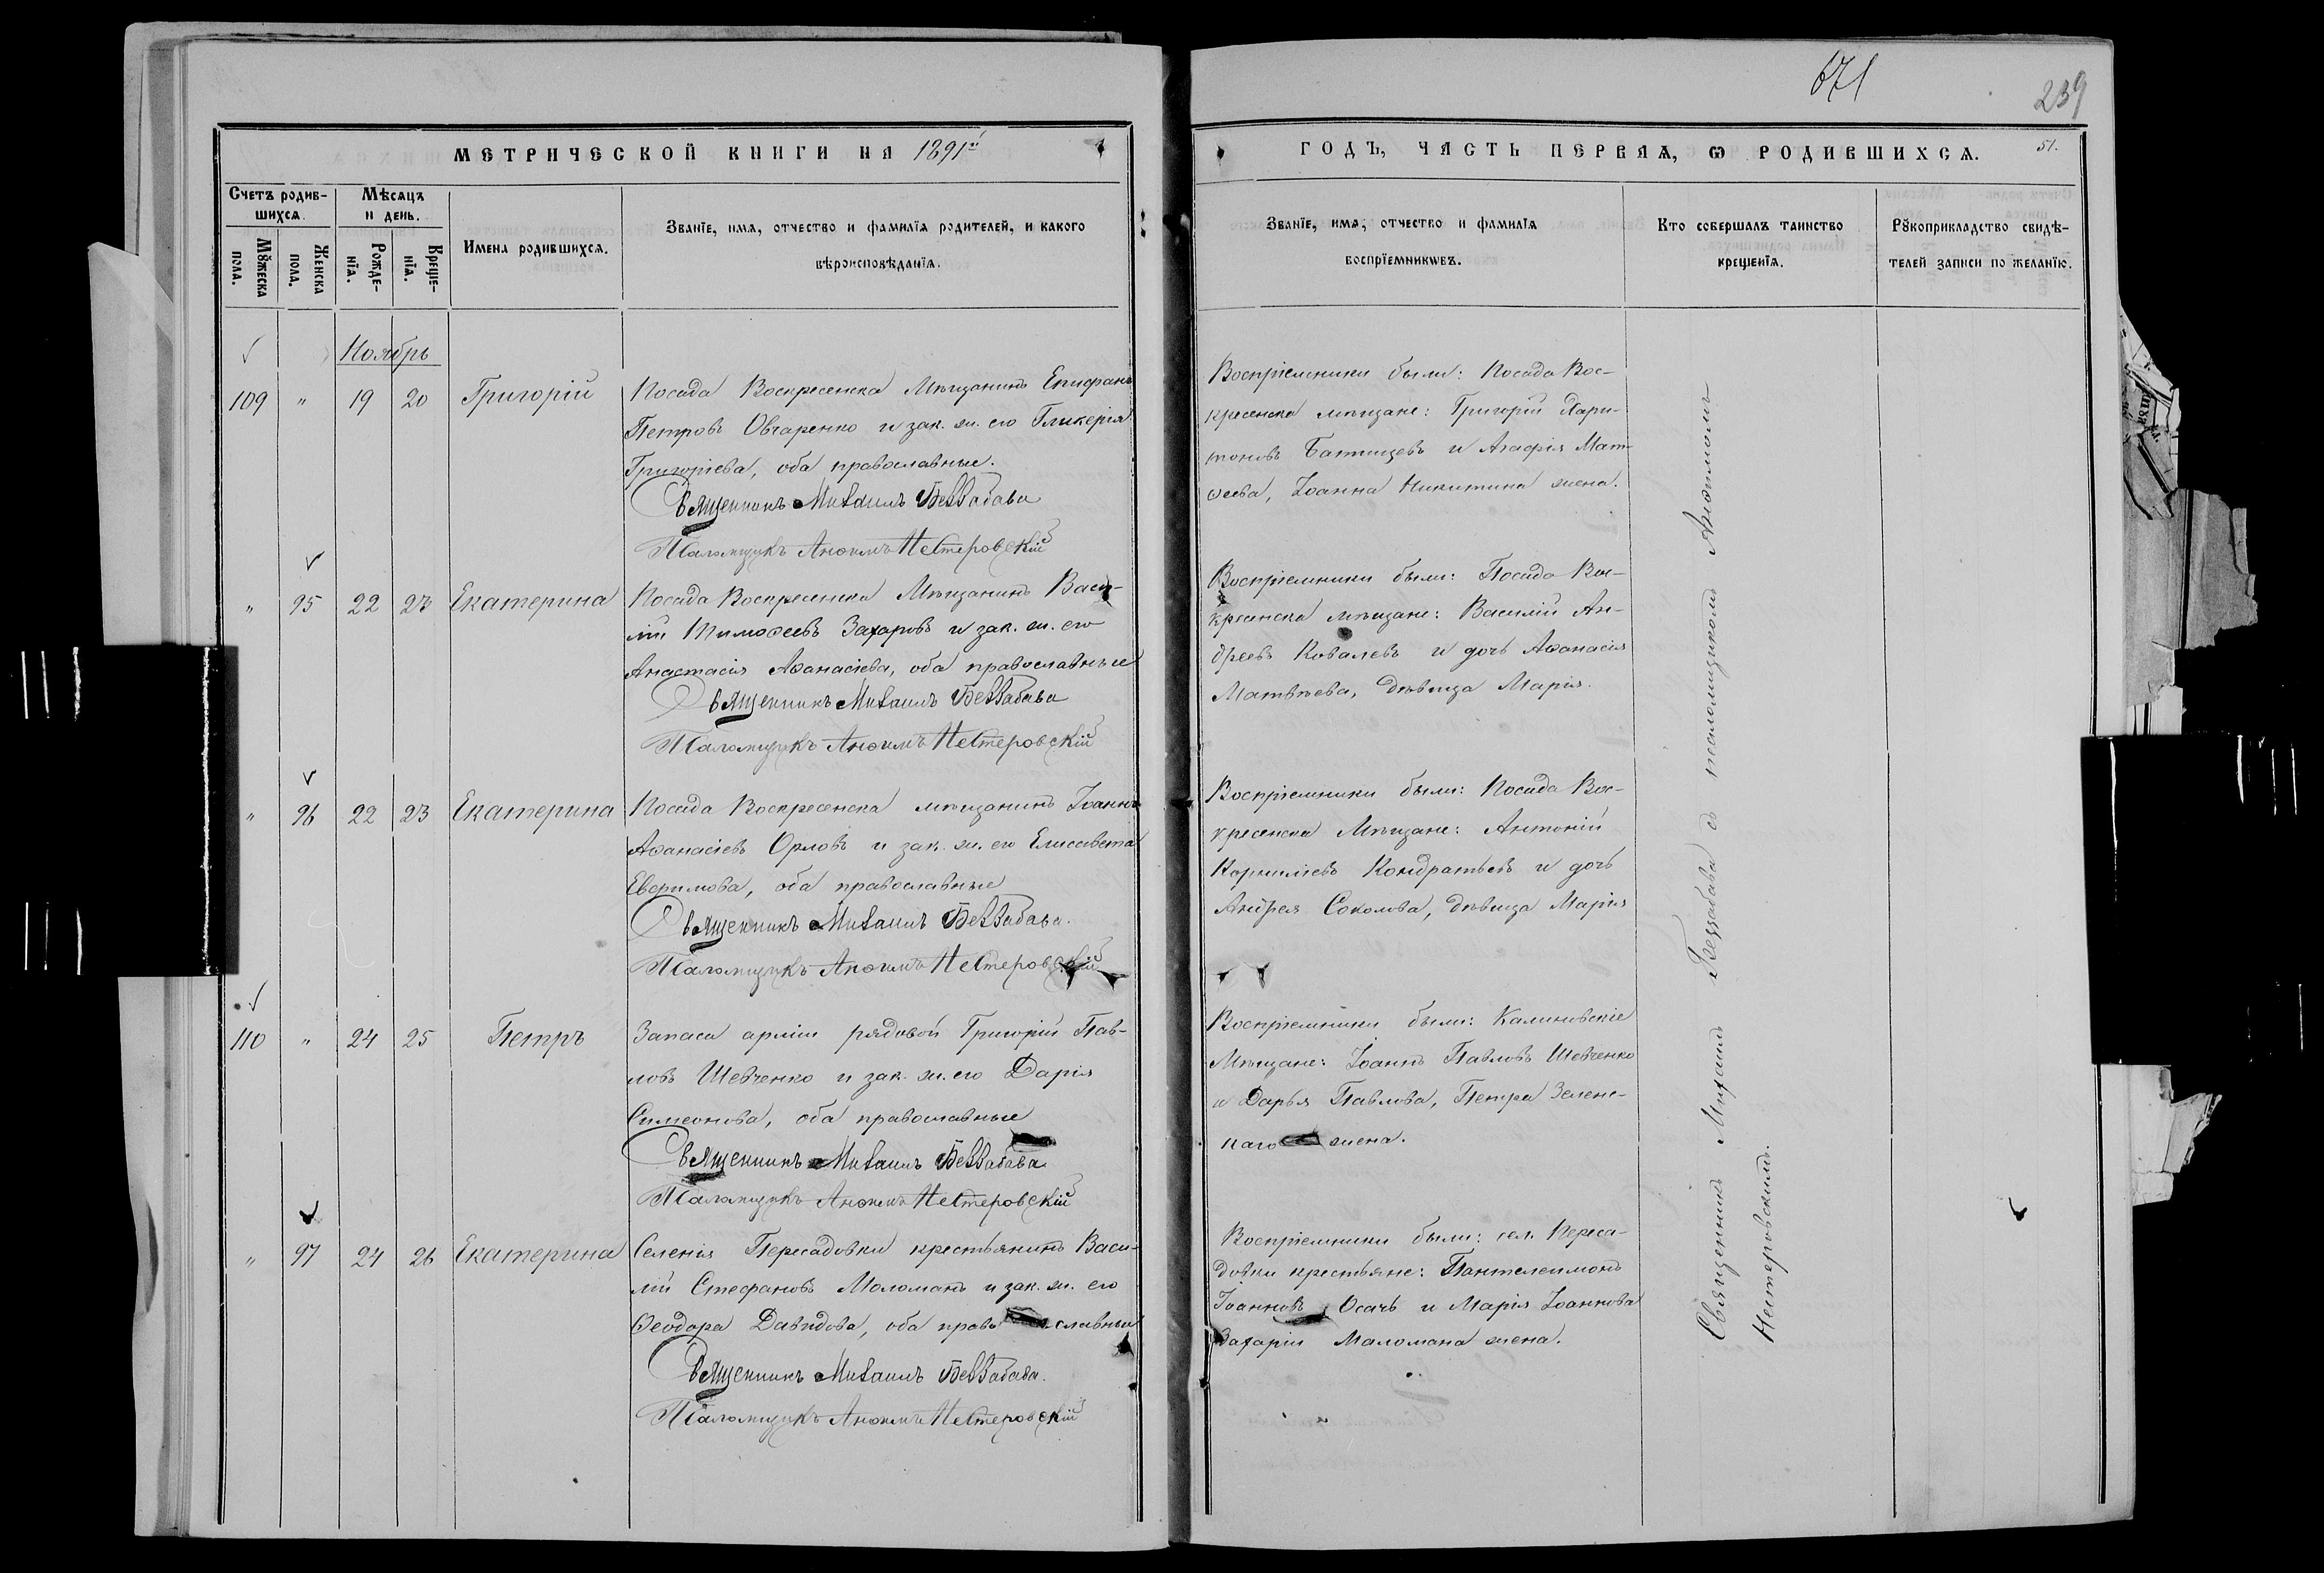 671
239
МЕТРИЧЕСКОЙ КНИГИ НА 1891й
ГОДЪ, ЧАСТЬ ПЕРВАЯ, Ѡ РОДИВШИХСѦ.
51.
Счетъ родив-
шихсѧ.
Мѣсѧцъ
и день.
Мꙋжеска
пола.
Женска
пола.
Рожде-
нїѧ.
Креще-
нїѧ.
Имена родившихсѧ.
Званїе, имѧ, отчество и фамилїѧ родителей, и какого
вѣроисповѣданїѧ.
Званїе, имѧ, отчество и фамилїѧ
воспрїемникѡвъ.
Кто совершалъ таинство
крещенїѧ.
Рꙋкоприкладство свидѣ-
телей записи по желанїю.
Ноябрь
109 " 19 20 Григорій
Посада Воскресенска Мѣщанинъ Епифанъ
Петровъ Овчаренко и зак. ж. его Гликерія
Григоріева, оба православные.
Священникъ Михаилъ Беззабава
Псаломщикъ Анѳимъ Нестеровскій
Воспріемники были: Посада Вос-
кресенска мѣщане: Григорій Хари-
тоновъ Батищевъ и Агафія Мат-
ѳеева, Іоанна Никитина жена.
" 95 22 23 Екатерина
Посада Воскресенска Мѣщанинъ Васи-
лій Тимоѳеевъ Захаровъ и зак. ж. его
Анастасія Аѳанасіева, оба православные
Священникъ Михаилъ Беззабава
Псаломщикъ Анѳимъ Нестеровскій
Воспріемники были: Посада Вос-
кресенска мѣщане: Василій Ан-
дреевъ Ковалевъ и дочь Аѳанасія
Матвѣева, дѣвица Марія.
" 96 22 23 Екатерина
Посада Воскресенска мѣщанинъ Іоаннъ
Аѳанасіевъ Орловъ и зак. ж. его Елисавета
Евфимова, оба православные
Священникъ Михаилъ Беззабава.
Псаломщикъ Анѳимъ Нестеровскій
Воспріемники были: Посада Вос-
кресенска Мѣщане: Антоній
Корниліевъ Кондратьевъ и дочь
Андрея Соколова, дѣвица Марія
110 " 24 25 Петръ
Запаса арміи рядовой Григорій Пав-
ловъ Шевченко и зак. ж. его Дарія
Симеонова, оба православные
Священникъ Михаилъ Беззабава
Псаломщикъ Анѳимъ Нестеровскій
Воспріемники были: Калиновскіе
Мѣщане: Іоаннъ Павловъ Шевченко
и Дарья Павлова, Петра Зелен-
наго жена.
" 97 24 26 Екатерина
Селенія Пересадовки крестьянинъ Васи-
лій Стефановъ Маломанъ и зак. ж. его
Ѳеодора Давидова, оба православные
Священникъ Михаилъ Беззабава.
Псаломщикъ Анѳимъ Нестеровскій
Воспріемники были: сел. Переса-
довки крестьяне: Пантелеимонъ
Іоанновъ Осачъ и Марія Іоаннова
Захаріи Маломана жена.
Священникъ Михаилъ Беззабава съ псаломщикомъ Анѳимомъ
Нестеровскимъ.